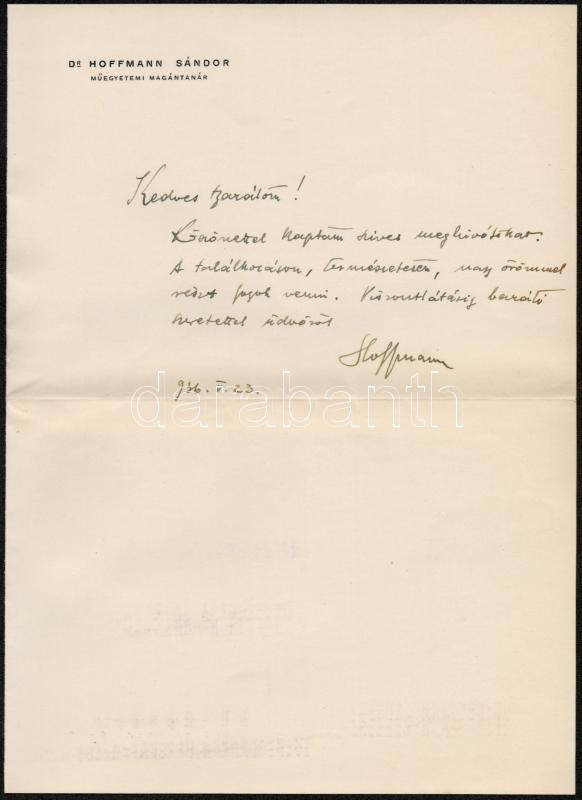 Dr HOFFMANN SÁNDOR
MŰEGYETEMI MAGÁNTANÁR
Kedves barátom!
Köszönettel kaptam szives meghivástokat.
A találkozáson, természetesen, nagy örömmel
részt fogok venni. Viszontlátásig baráti
szeretettel üdvözöl
Hoffmann
936. V. 23.
darabanth